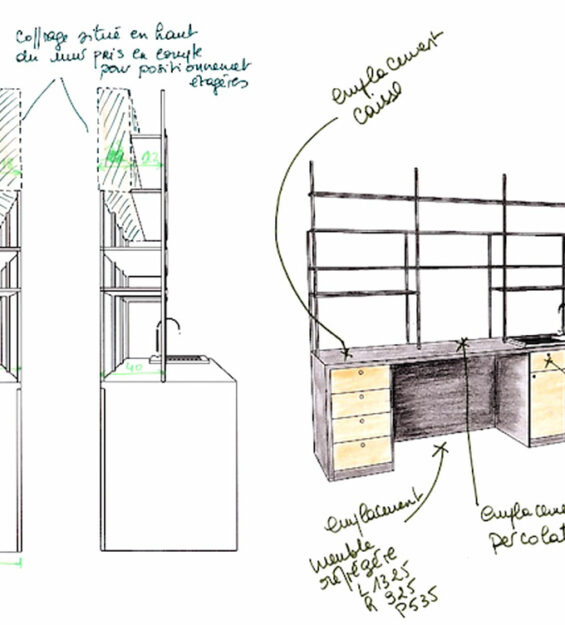 Coffrage situé en haut
du mur pris en compte
pour positionnement
étagères
emplacement
caisse
23
40
emplacement
meuble
réfrigéré
L 1325
R 925
P 535
emplaceme
percolat